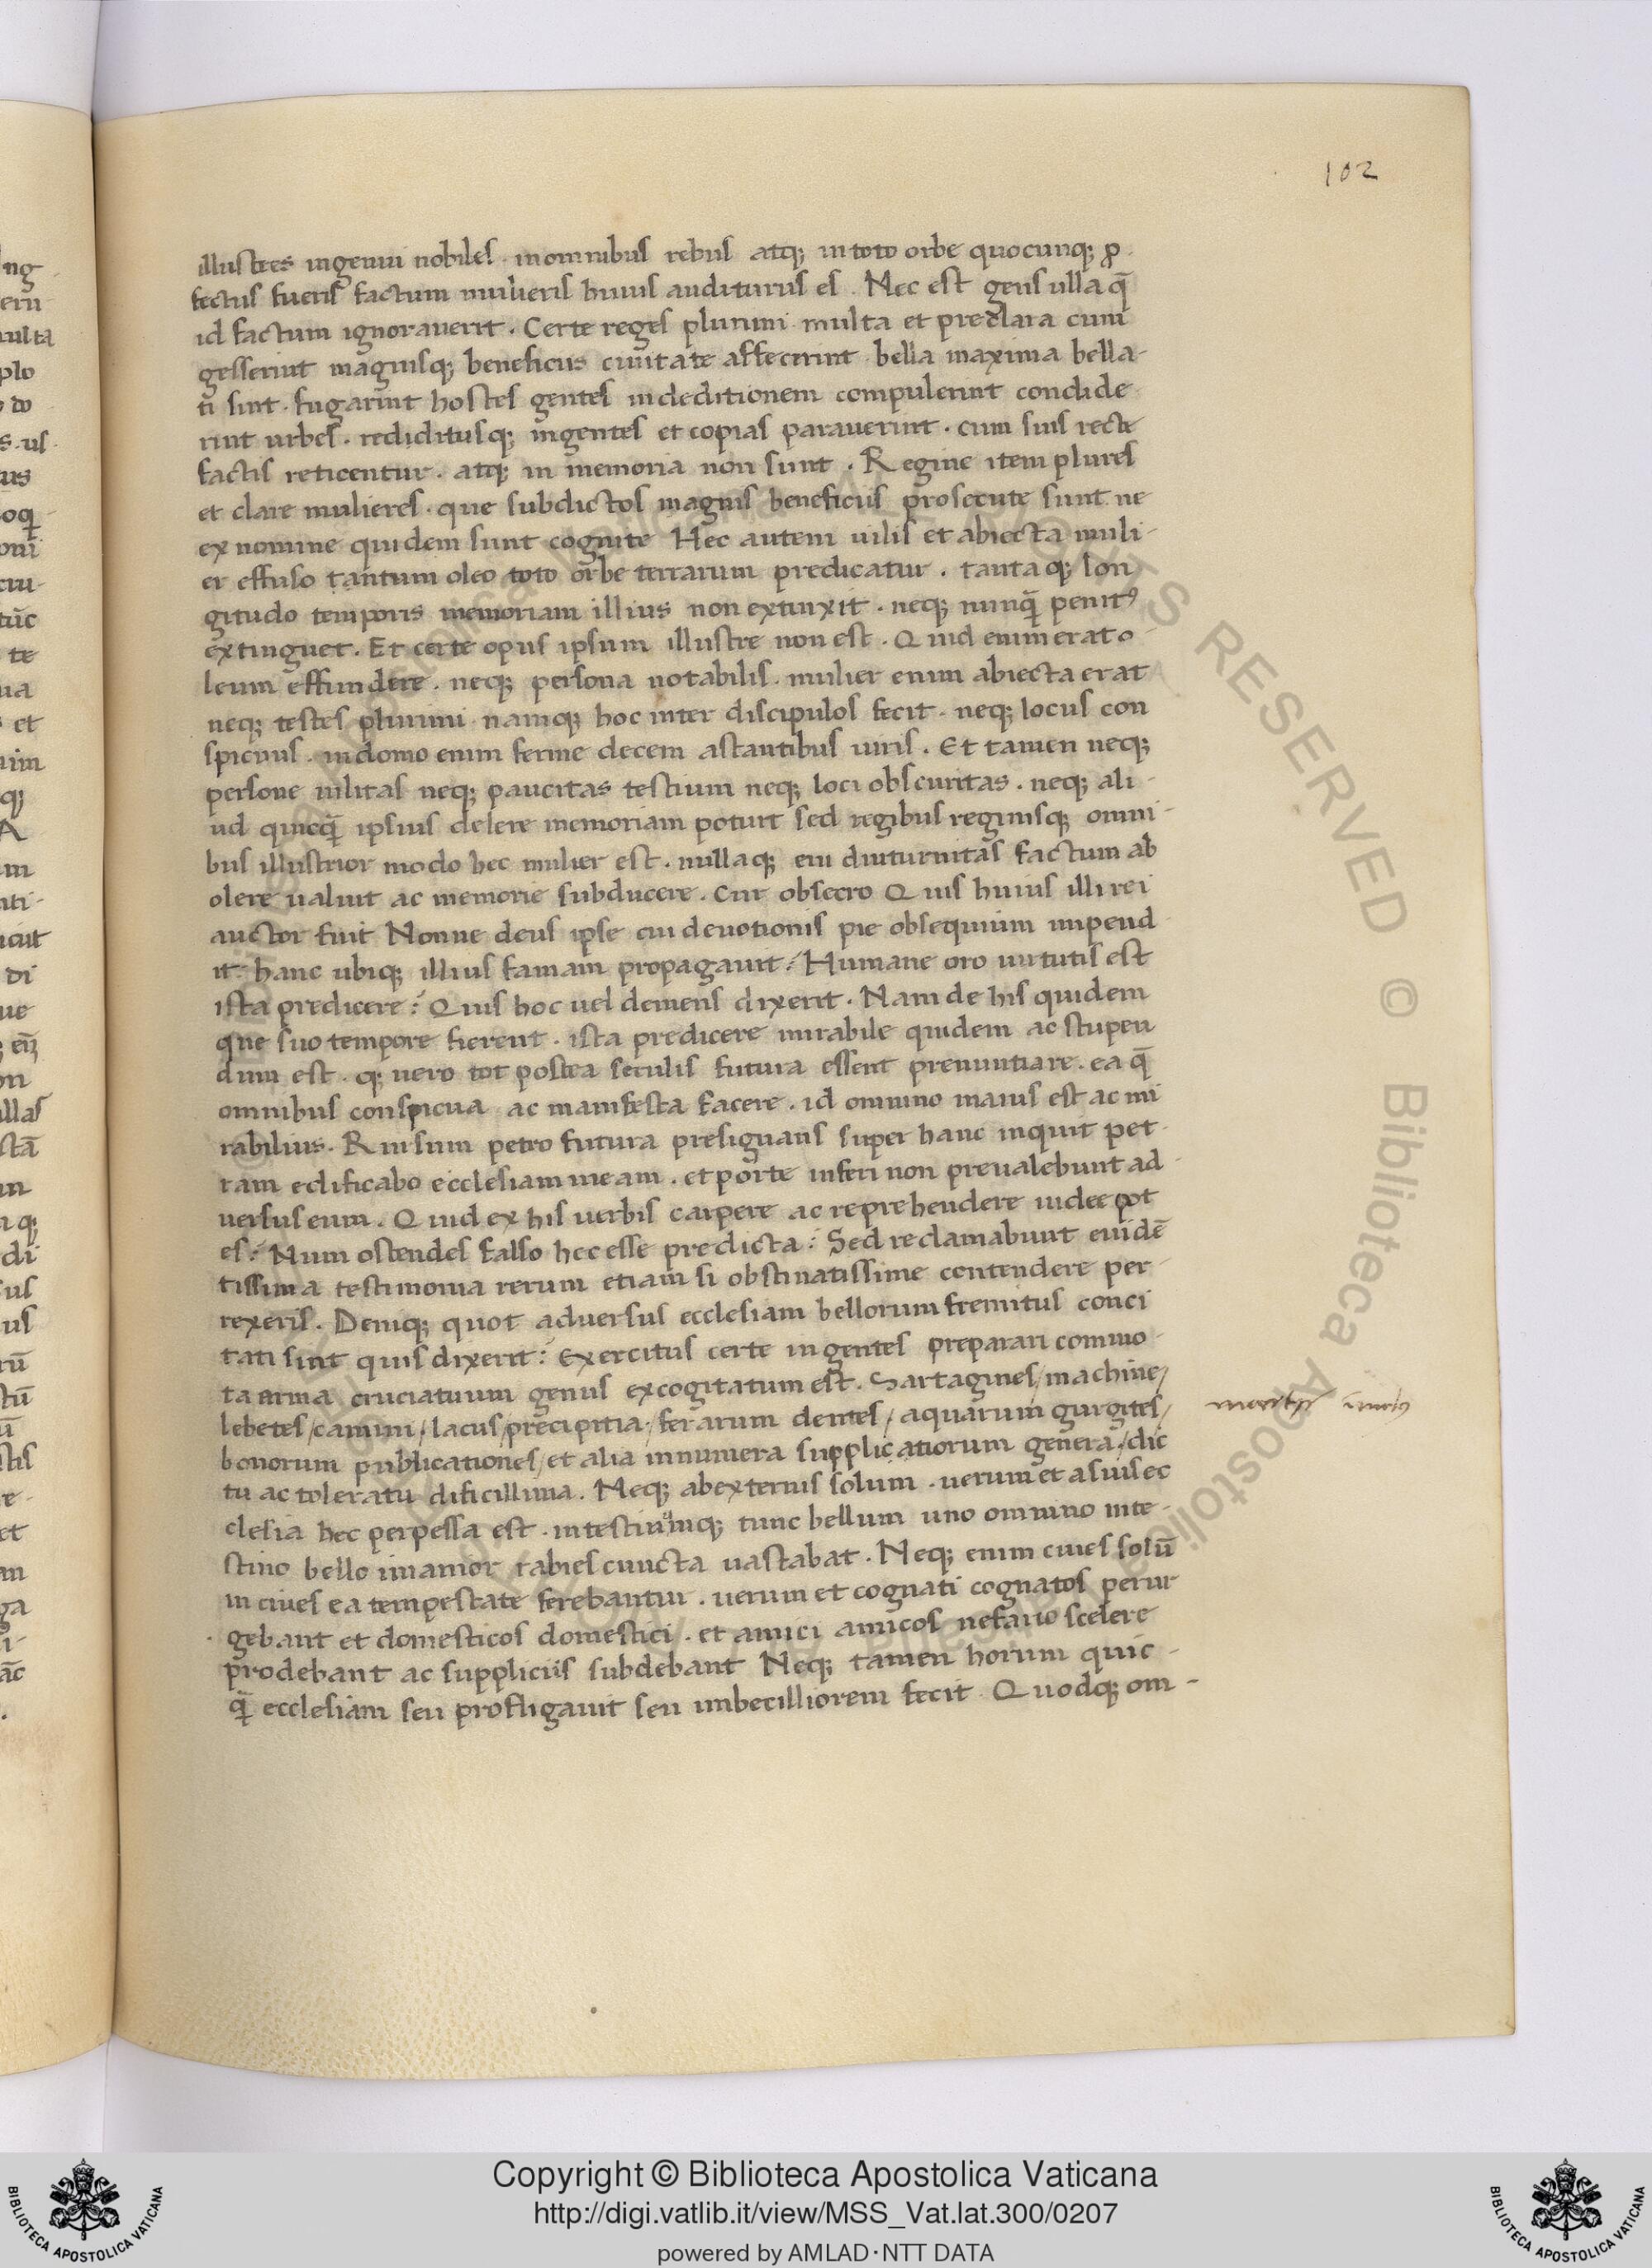 102
illustres ingenui nobiles · in omnibus rebus atq; in toto orbe quocunq; ꝓ
fectus fueris factum mulieris huius auditurus es . Nec est gens ulla q̄
id factum ignorauerit . Certe reges plurimi multa et preclara cum
gesserint magnisq; beneficiis ciuitate affecerint bella maxima bella-
ti sint . fugarint hostes gentes indeditionem compulerint condide
rint urbes . rediditusq; ingentes et copias parauerint . cum suis recte
factis reticentur . atq; in memoria non sunt . Regine item plures
et clare mulieres . que subdictos magnis beneficiis prosecute sunt ne
ex nomine quidem sunt cognite Hec autem uilis et abiecta muli-
er effuso tantum oleo toto orbe terrarum predicatur . tanta q; lon
gitudo temporis memoriam illius non extinxit . neq; nunq̄ penit9
extinguet . Et certe opus ipsum illustre non est . Quid enim erat o
leum effundere . neq; persona notabilis . mulier enim abiecta erat
neq; testes plurimi namq; hoc inter discipulos fecit . neq; locus con
spicuus . in domo enim ferme decem astantibus uiris . Et tamen neq;
persone uilitas neq; paucitas testium neq; loci obscuritas . neq; ali-
ud quicq̄ ipsius delere memoriam potuit sed regibus reginisq; omni-
bus illustrior modo hec mulier est . nullaq; eui diuturnitas factum ab
olere ualuit ac memorie subducere . Cur obsecro Quis huius illi rei
auctor fuit Nonne deus ipse cui deuotionis pie obsequium impend
it . hanc ubiq; illius famam propagauit : Humane oro uirtutis est
ista predicere : Quis hoc uel demens dixerit . Nam de his quidem
que suo tempore fierent . ista predicere mirabile quidem ac stupen
dum est . q; uero tot postea seculis futura essent prenuntiare . ea q̄
omnibus conspicua ac manifesta facere . id omnino maius est ac mi
rabilius . Rursum petro futura presignans super hanc inquit pet-
ram edificabo ecclesiam meam . et porte inferi non preualebunt ad-
uersus eum . Quid ex his uerbis carpere ac reprehendere iudee pot
es : Num ostendes falso hec esse predicta : Sed reclamabunt euidē
tissima testimonia rerum etiam si obstinatissime contendere per-
rexeris . Deniq; quot aduersus ecclesiam bellorum fremitus conci
tati sint quis dixerit : Exercitus certe ingentes preparati commo-
ta arma cruciatuum genus excogitatum est . Sartagines / machine /
lebetes / camini / lacus / precipitia / ferarum dentes / aquarum gurgites /
bonorum publicationes / et alia innumera supplicatiorum genera / dic
tu ac toleratu dificillima . Neq; abexternis solum . uerum et a suis ec
clesia hec perpessa est . intestinumq; tunc bellum uno omnino inte-
stino bello imanior rabies cuncta uastabat . Neq; enim ciues solū
in ciues ea tempestate ferebantur . uerum et cognati cognatos perur
gebant et domesticos domestici . et amici amicos nefario scelere
prodebant ac suppliciis subdebant Neq; tamen horum quic-
q̄ ecclesiam seu profligauit seu imbecilliorem fecit . Quodq; om-
ng
eru
multa
plo
Copyright © Biblioteca Apostolica Vaticana
http://digi.vatlib.it/view/MSS_Vat.lat.300/0207
powered by AMLAD·NTT DATA
BIBLIOTECA APOSTOLICA VATICANA
BIBLIOTECA APOSTOLICA VATICANA